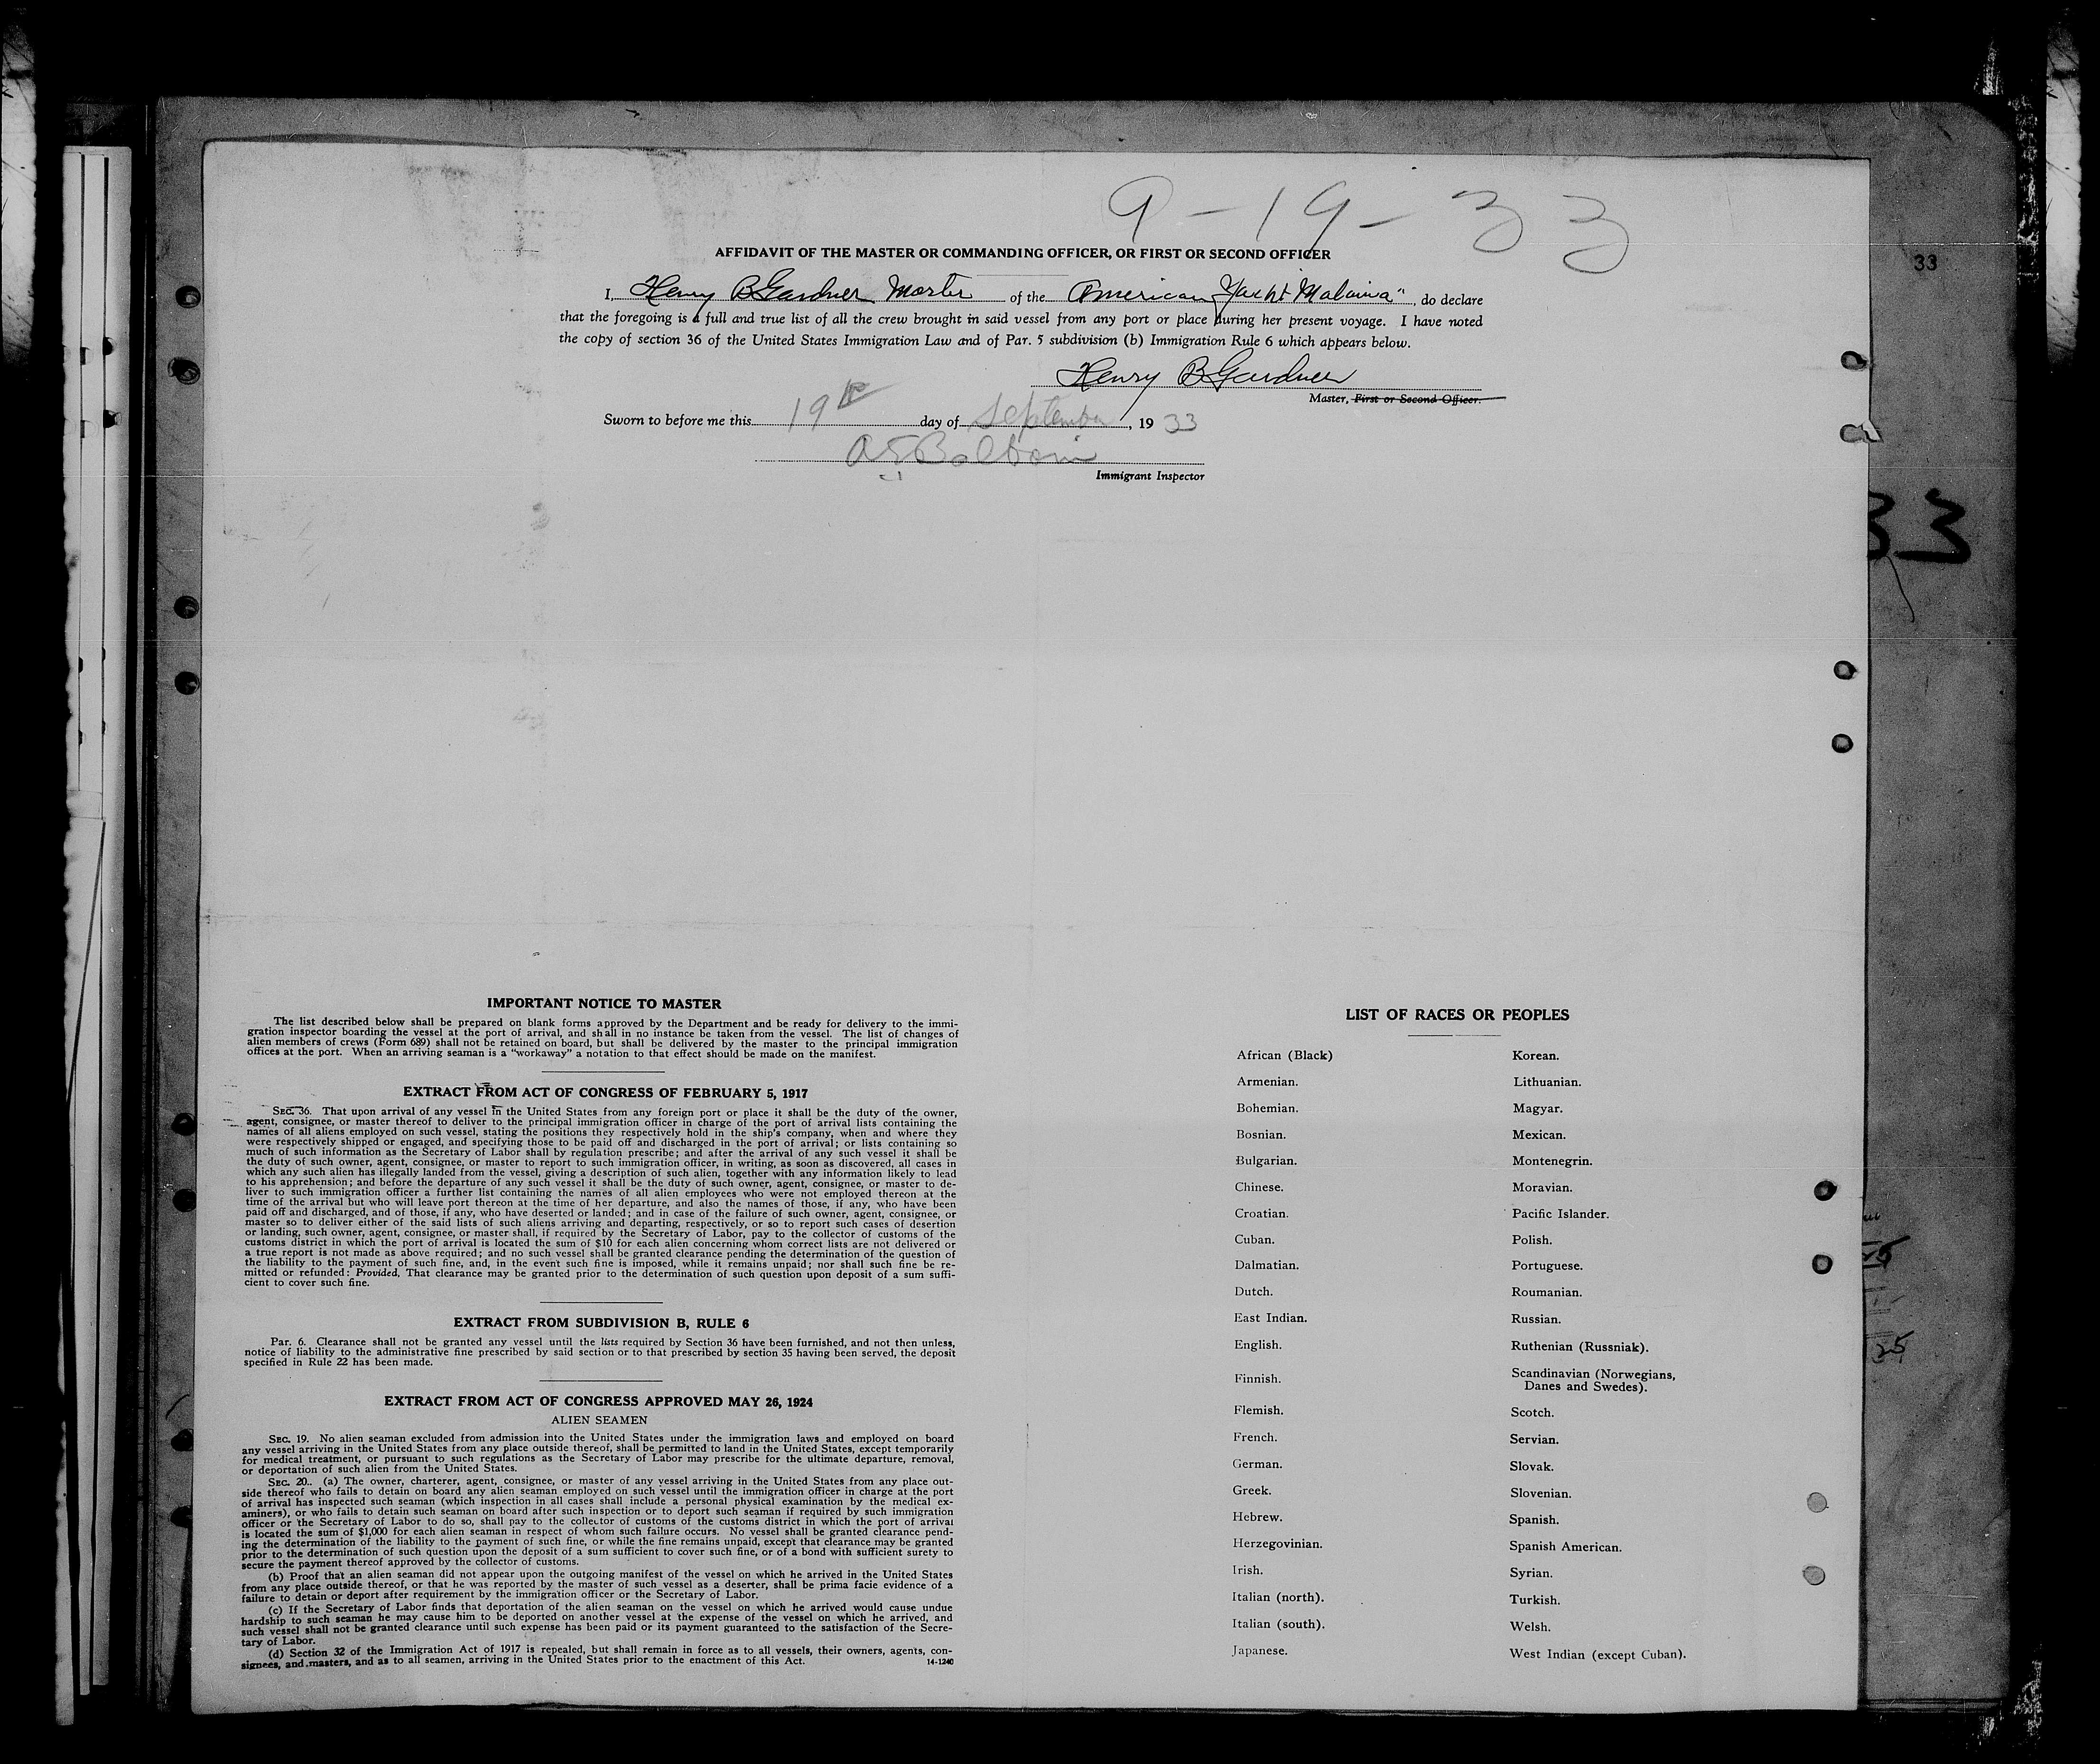 9-19-33
AFFIDAVIT OF THE MASTER OR COMMANDING OFFICER, OR FIRST OR SECOND OFFICER
I, Henry B Gardner Master of the American Yacht "Malaina", do declare
that the foregoing is a full and true list of all the crew brought in said vessel from any port or place during her present voyage. I have noted
the copy of section 36 of the United States Immigration Law and of Par. 5 subdivision (b) Immigration Rule 6 which appears below.
Henry B Gardner
Master, First or Second Officer.
Sworn to before me this 19th day of September, 1933
Immigrant Inspector
33
33
IMPORTANT NOTICE TO MASTER
The list described below shall be prepared on blank forms approved by the Department and be ready for delivery to the immi-
gration inspector boarding the vessel at the port of arrival, and shall in no instance be taken from the vessel. The list of changes of
alien members of crews (Form 689) shall not be retained on board, but shall be delivered by the master to the principal immigration
offices at the port. When an arriving seaman is a "workaway" a notation to that effect should be made on the manifest.
EXTRACT FROM ACT OF CONGRESS OF FEBRUARY 5, 1917
SEC. 36. That upon arrival of any vessel in the United States from any foreign port or place it shall be the duty of the owner,
agent, consignee, or master thereof to deliver to the principal immigration officer in charge of the port of arrival lists containing the
names of all aliens employed on such vessel, stating the positions they respectively hold in the ship's company, when and where they
were respectively shipped or engaged, and specifying those to be paid off and discharged in the port of arrival; or lists containing so
much of such information as the Secretary of Labor shall by regulation prescribe; and after the arrival of any such vessel it shall be
the duty of such owner, agent, consignee, or master to report to such immigration officer, in writing, as soon as discovered, all cases in
which any such alien has illegally landed from the vessel, giving a description of such alien, together with any information likely to lead
to his apprehension; and before the departure of any such vessel it shall be the duty of such owner, agent, consignee, or master to de-
liver to such immigration officer a further list containing the names of all alien employees who were not employed thereon at the
time of the arrival but who will leave port thereon at the time of her departure, and also the names of those, if any, who have been
paid off and discharged, and of those, if any, who have deserted or landed; and in case of the failure of such owner, agent, consignee, or
master so to deliver either of the said lists of such aliens arriving and departing, respectively, or so to report such cases of desertion
or landing, such owner, agent, consignee, or master shall, if required by the Secretary of Labor, pay to the collector of customs of the
customs district in which the port of arrival is located the sum of $10 for each alien concerning whom correct lists are not delivered or
a true report is not made as above required; and no such vessel shall be granted clearance pending the determination of the question of
the liability to the payment of such fine, and, in the event such fine is imposed, while it remains unpaid; nor shall such fine be re-
mitted or refunded: Provided, That clearance may be granted prior to the determination of such question upon deposit of a sum suffi-
cient to cover such fine.
EXTRACT FROM SUBDIVISION B, RULE 6
Par. 6. Clearance shall not be granted any vessel until the lists required by Section 36 have been furnished, and not then unless,
notice of liability to the administrative fine prescribed by said section or to that prescribed by section 35 having been served, the deposit
specified in Rule 22 has been made.
EXTRACT FROM ACT OF CONGRESS APPROVED MAY 26, 1924
ALIEN SEAMEN
SEC. 19. No alien seaman excluded from admission into the United States under the immigration laws and employed on board
any vessel arriving in the United States from any place outside thereof, shall be permitted to land in the United States, except temporarily
for medical treatment, or pursuant to such regulations as the Secretary of Labor may prescribe for the ultimate departure, removal,
or deportation of such alien from the United States.
SEC. 20. (a) The owner, charterer, agent, consignee, or master of any vessel arriving in the United States from any place out-
side thereof who fails to detain on board any alien seaman employed on such vessel until the immigration officer in charge at the port
of arrival has inspected such seaman (which inspection in all cases shall include a personal physical examination by the medical ex-
aminers), or who fails to detain such seaman on board after such inspection or to deport such seaman if required by such immigration
officer or the Secretary of Labor to do so, shall pay to the collector of customs of the customs district in which the port of arrival
is located the sum of $1,000 for each alien seaman in respect of whom such failure occurs. No vessel shall be granted clearance pend-
ing the determination of the liability to the payment of such fine, or while the fine remains unpaid, except that clearance may be granted
prior to the determination of such question upon the deposit of a sum sufficient to cover such fine, or of a bond with sufficient surety to
secure the payment thereof approved by the collector of customs.
(b) Proof that an alien seaman did not appear upon the outgoing manifest of the vessel on which he arrived in the United States
from any place outside thereof, or that he was reported by the master of such vessel as a deserter, shall be prima facie evidence of a
failure to detain or deport after requirement by the immigration officer or the Secretary of Labor.
(c) If the Secretary of Labor finds that deportation of the alien seaman on the vessel on which he arrived would cause undue
hardship to such seaman he may cause him to be deported on another vessel at the expense of the vessel on which he arrived, and
such vessel shall not be granted clearance until such expense has been paid or its payment guaranteed to the satisfaction of the Secre-
tary of Labor.
(d) Section 32 of the Immigration Act of 1917 is repealed, but shall remain in force as to all vessels, their owners, agents, con-
signees, and masters, and as to all seamen, arriving in the United States prior to the enactment of this Act.
14-1240
LIST OF RACES OR PEOPLES
African (Black)
Armenian.
Bohemian.
Bosnian.
Bulgarian.
Chinese.
Croatian.
Cuban.
Dalmatian.
Dutch.
East Indian.
English.
Finnish.
Flemish.
French.
German.
Greek.
Hebrew.
Herzegovinian.
Irish.
Italian (north).
Italian (south).
Japanese.
Korean.
Lithuanian.
Magyar.
Mexican.
Montenegrin.
Moravian.
Pacific Islander.
Polish.
Portuguese.
Roumanian.
Russian.
Ruthenian (Russniak).
Scandinavian (Norwegians,
Danes and Swedes).
Scotch.
Servian.
Slovak.
Slovenian.
Spanish.
Spanish American.
Syrian.
Turkish.
Welsh.
West Indian (except Cuban).